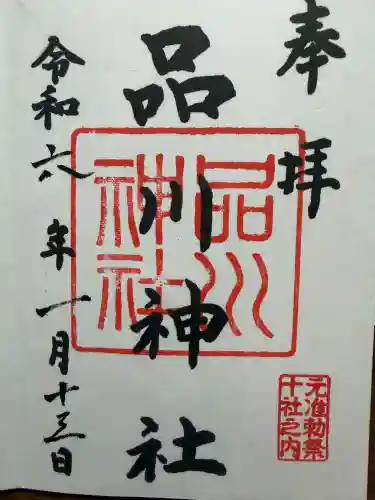 奉拝
品川神社
品川
神社
元准勅祭
十社之内
令和六年一月十三日